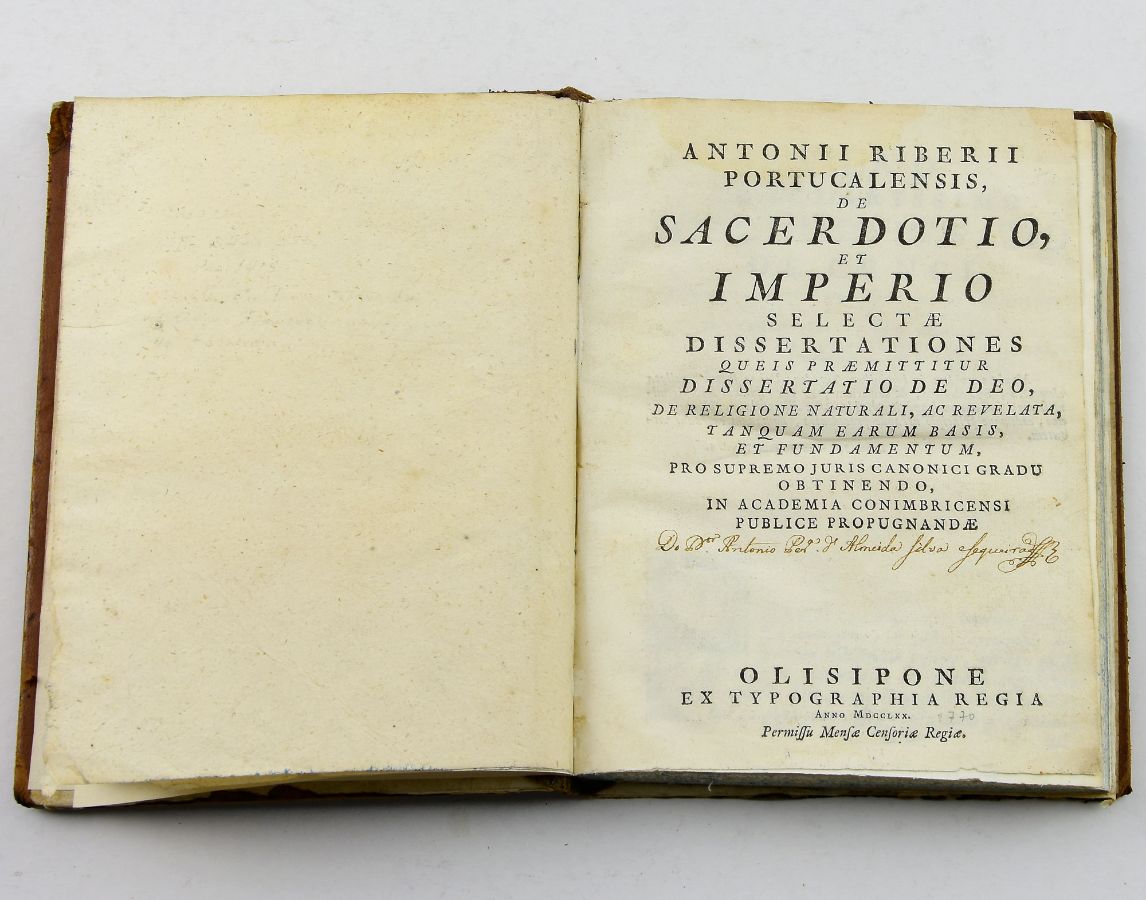 ANTONII RIBERII
PORTUCALENSIS,
DE
SACERDOTIO,
ET
IMPERIO
SELECTÆ
DISSERTATIONES
QUEIS PRÆMITTITUR
DISSERTATIO DE DEO,
DE RELIGIONE NATURALI, AC REVELATA,
TANQUAM EARUM BASIS,
ET FUNDAMENTUM,
PRO SUPREMO JURIS CANONICI GRADU
OBTINENDO,
IN ACADEMIA CONIMBRICENSI
PUBLICE PROPUGNANDÆ
Do D.or Antonio Per.a d' Almeida Silva e Sequeira
OLISIPONE
EX TYPOGRAPHIA REGIA
ANNO MDCCLXX. 1770
Permiſſu Menſæ Cenſoriæ Regiæ.